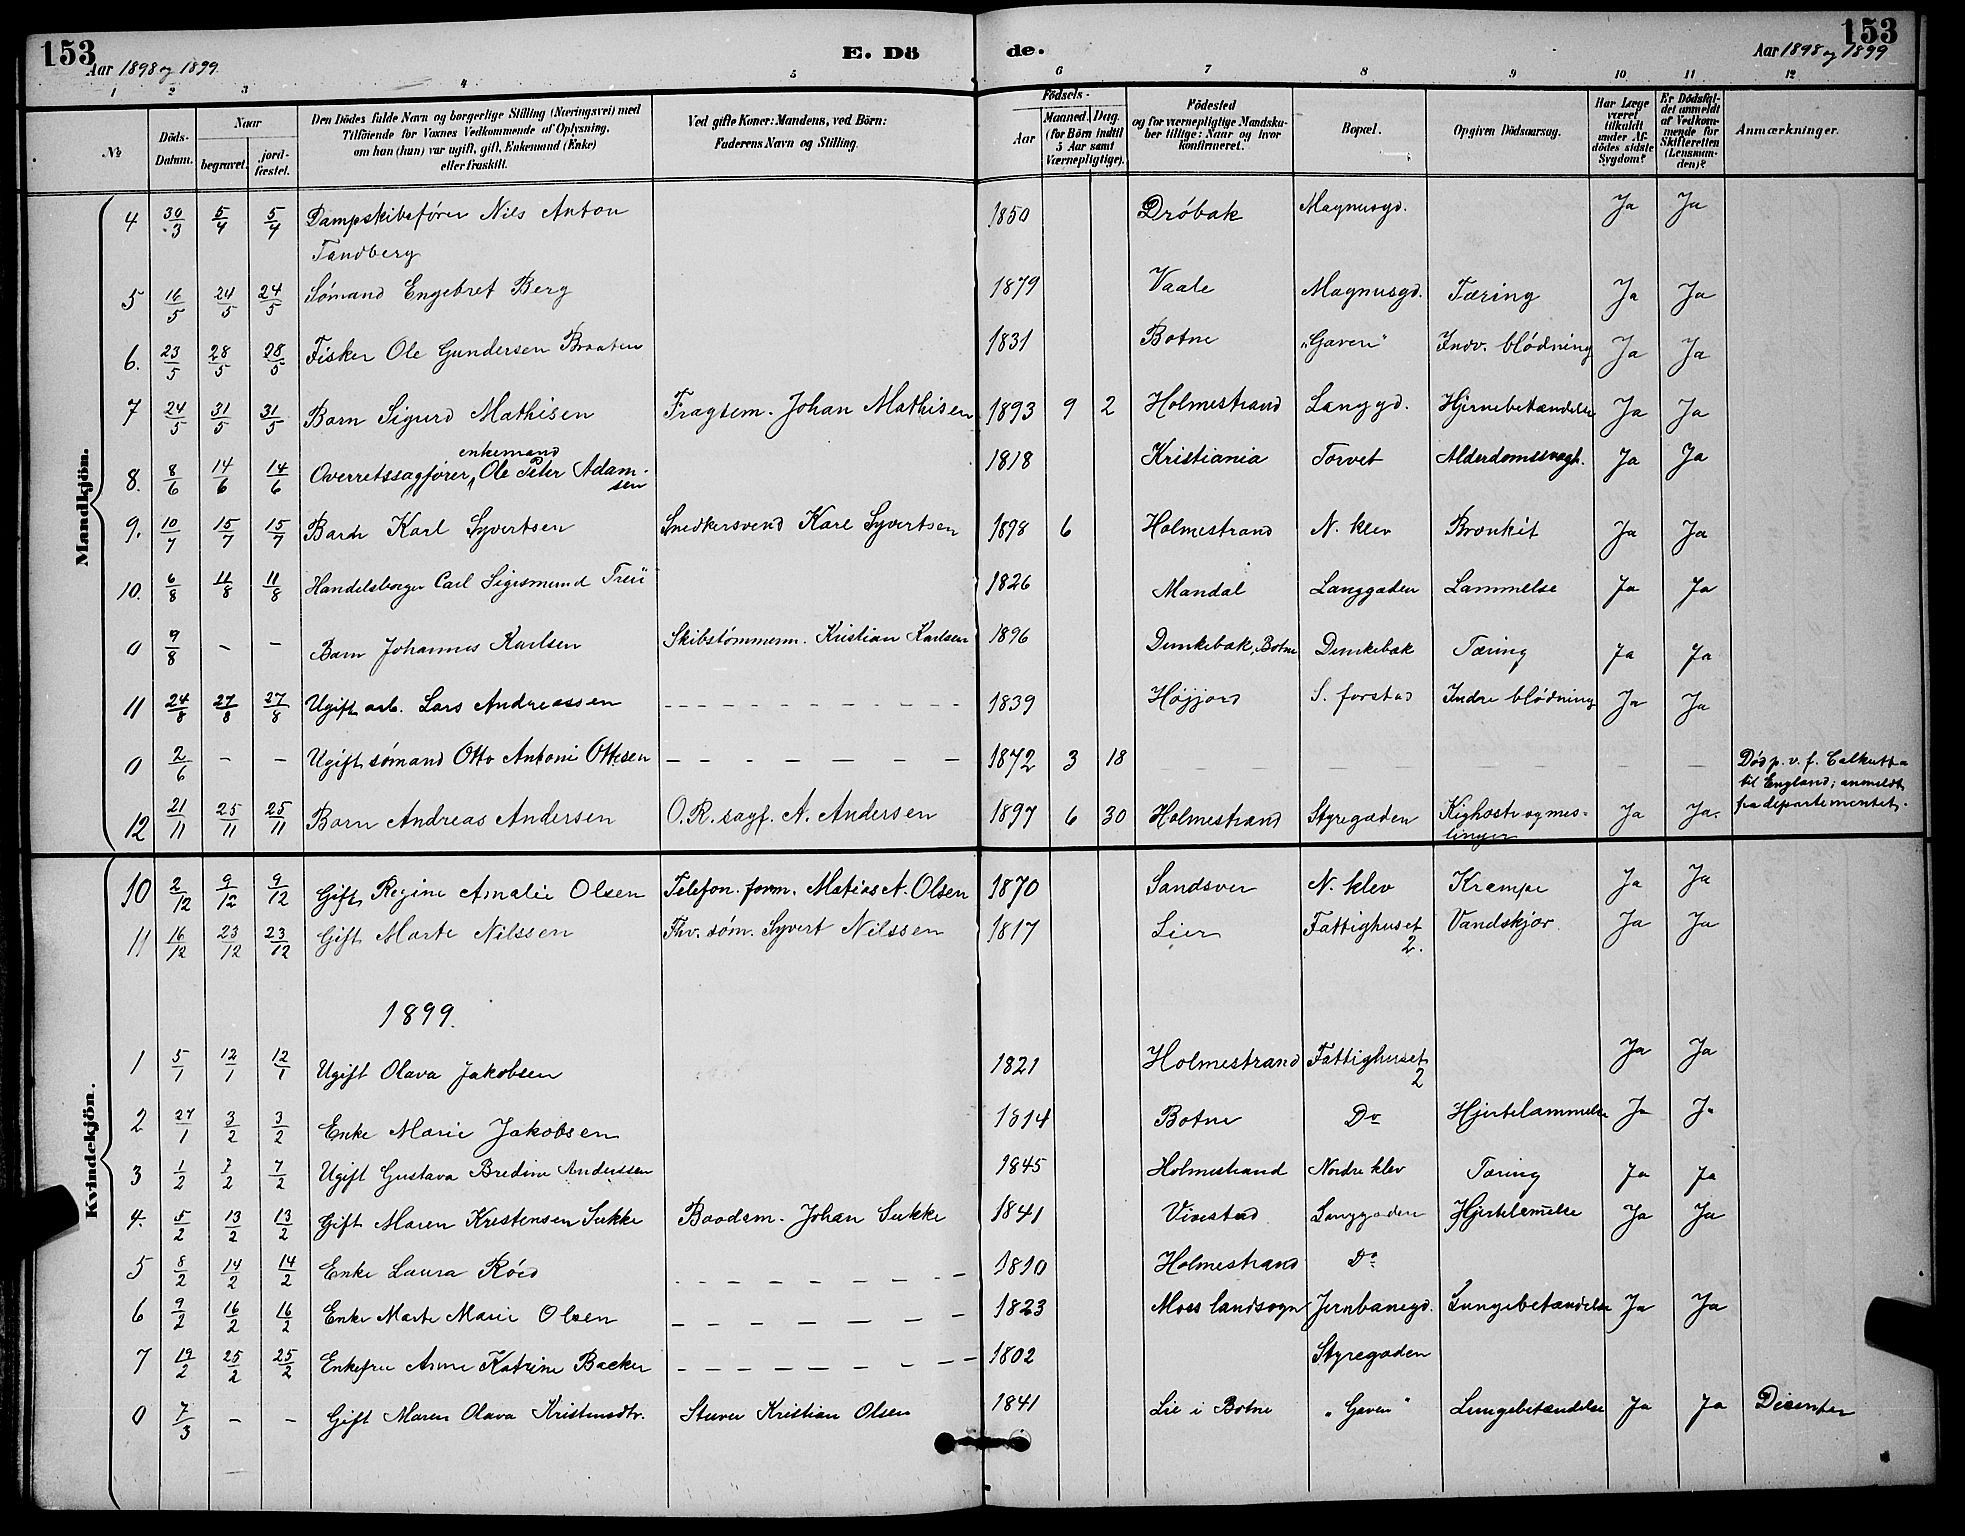 153
Aar 1898 og 1899.
E. Dö
de.
153
Aar 1898 og 1899
1 2 3 4 5 6 7 8 9 10 11 12
No
Döds-Datum.
Naar
begravet. jord-fæstet.
Den Dödes fulde Navn og borgerlige Stilling (Næringsvei) med
Tilföiende for Voxnes Vedkommende af Oplysning,
om han (hun) var ugift, gift, Enkemand (Enke)
eller fraskilt.
Ved gifte Koner: Mandens, ved Börn:
Faderens Navn og Stilling.
Födsels-
Aar
Maaned. Dag.
(for Börn indtil
5 Aar samt
Værnepligtige).
Födested
og for værnepligtige Mandska-
ber tillige: Naar og hvor
konfirmeret.
Bopæl.
Opgiven Dödsaarsag.
Har Læge
været
tilkaldt
under Af-
dödes sidste
Sygdom?
Er Dödsfal-
det anmeldt
af Vedkom-
mende for
Skifteretten
(Lensman-
den)?
Anmærkninger.
Mandkjön.
4 30/3 5/4 5/4 Dampskibsfører Nils Anton 1850 Drøbak Magnusgd. Ja Ja
Tandberg
5 16/5 24/5 24/5 Sømand Engebret Berg 1879 Vaale Magnusgd. Tæring Ja Ja
6. 23/5 28/5 28/5 Fisker Ole Gundersen Braaten 1831 Botne "Gaven" Indv. blødning Ja Ja
7 24/5 31/5 31/5 Barn Sigurd Mathisen Fragtem. Johan Mathisen 1893 9 2 Holmestrand Langgd. Hjernebetændelse Ja Ja
enkemand
8. 8/6 14/6 14/6 Overretssagfører, Ole Peter Adam- 1818 Kristiania Torvet Alderdomssvagh. Ja Ja
sen
9. 10/7 15/7 15/7 Barn Karl Syvertsen Snedkersvend Karl Syvertsen 1898 6 Holmestrand N. klev Bronkit Ja Ja
10. 6/8 11/8 11/8 Handelsborger Carl Sigismund Treu 1826 Mandal Langgaden Lammelse Ja Ja
0 9/8 - - Barn Johannes Karlsen Skibstømmerm. Kristian Karlsen 1896 Dunkebak, Botne Dunkebak Tæring Ja Ja
11 24/8 27/8 27/8 Ugift arb. Lars Andreassen - - - 1839 Højjord S. forstad Indre blødning Ja Ja
0 2/6 - - Ugift sømand Otto Antoni Ottesen - - - 1872 3 18 - - - - - Død p. v. f. Calkutta
til England; anmeldt
fra departementet.
12 21/11 25/11 25/11 Barn Andreas Andersen O. R. sagf. A. Andersen 1897 6 30 Holmestrand Styregaden Kighoste og mes- Ja Ja.
linger
Kvindekjön.
10 2/12 9/12 9/12 Gift Regine Amalie Olsen Telefon. form. Matias A. Olsen 1870 Sandsver N. klev Krampe Ja Ja
11 16/12 23/12 23/12 Gift Marte Nilssen Fhv. søm. Syvert Nilssen 1817 Lier Fattighuset Vandskjør. Ja Ja
2.
1899.
1 5/1 12/1 12/1 Ugift Olava Jakobsen 1821 Holmestrand Fattighuset Ja Ja
2
2 27/1 3/2 3/2 Enke Marie Jakobsen 1814 Botne Do Hjertelammelse Ja Ja
3 1/2 7/2 7/2 Ugift Gustava Bredine Anderssen 1845 Holmestrand Nordre klev Tæring Ja Ja
4. 5/2 13/2 13/2 Gift Maren Kristensen Sukke Baadsm. Johan Sukke 1841 Vivestad Langgaden Hjertelam̅else Ja Ja
5 8/2 14/2 14/2 Enke Laura Röed - - - 1810 Holmestrand Do
6 9/2 16/2 16/2 Enke Marte Marie Olsen - - - 1823 Moss landsogn Jernbanegd. Lungebetændelse Ja Ja
7 19/2 25/2 25/2 Enkefru Anne Katrine Backer - - - 1802 Styregaden
0 7/3 - - Gift Maren Olava Kristensdtr. Stuver Kristian Olsen 1841 Lie i Botne "Gaven" Lungebetændelse Ja Ja Disenter